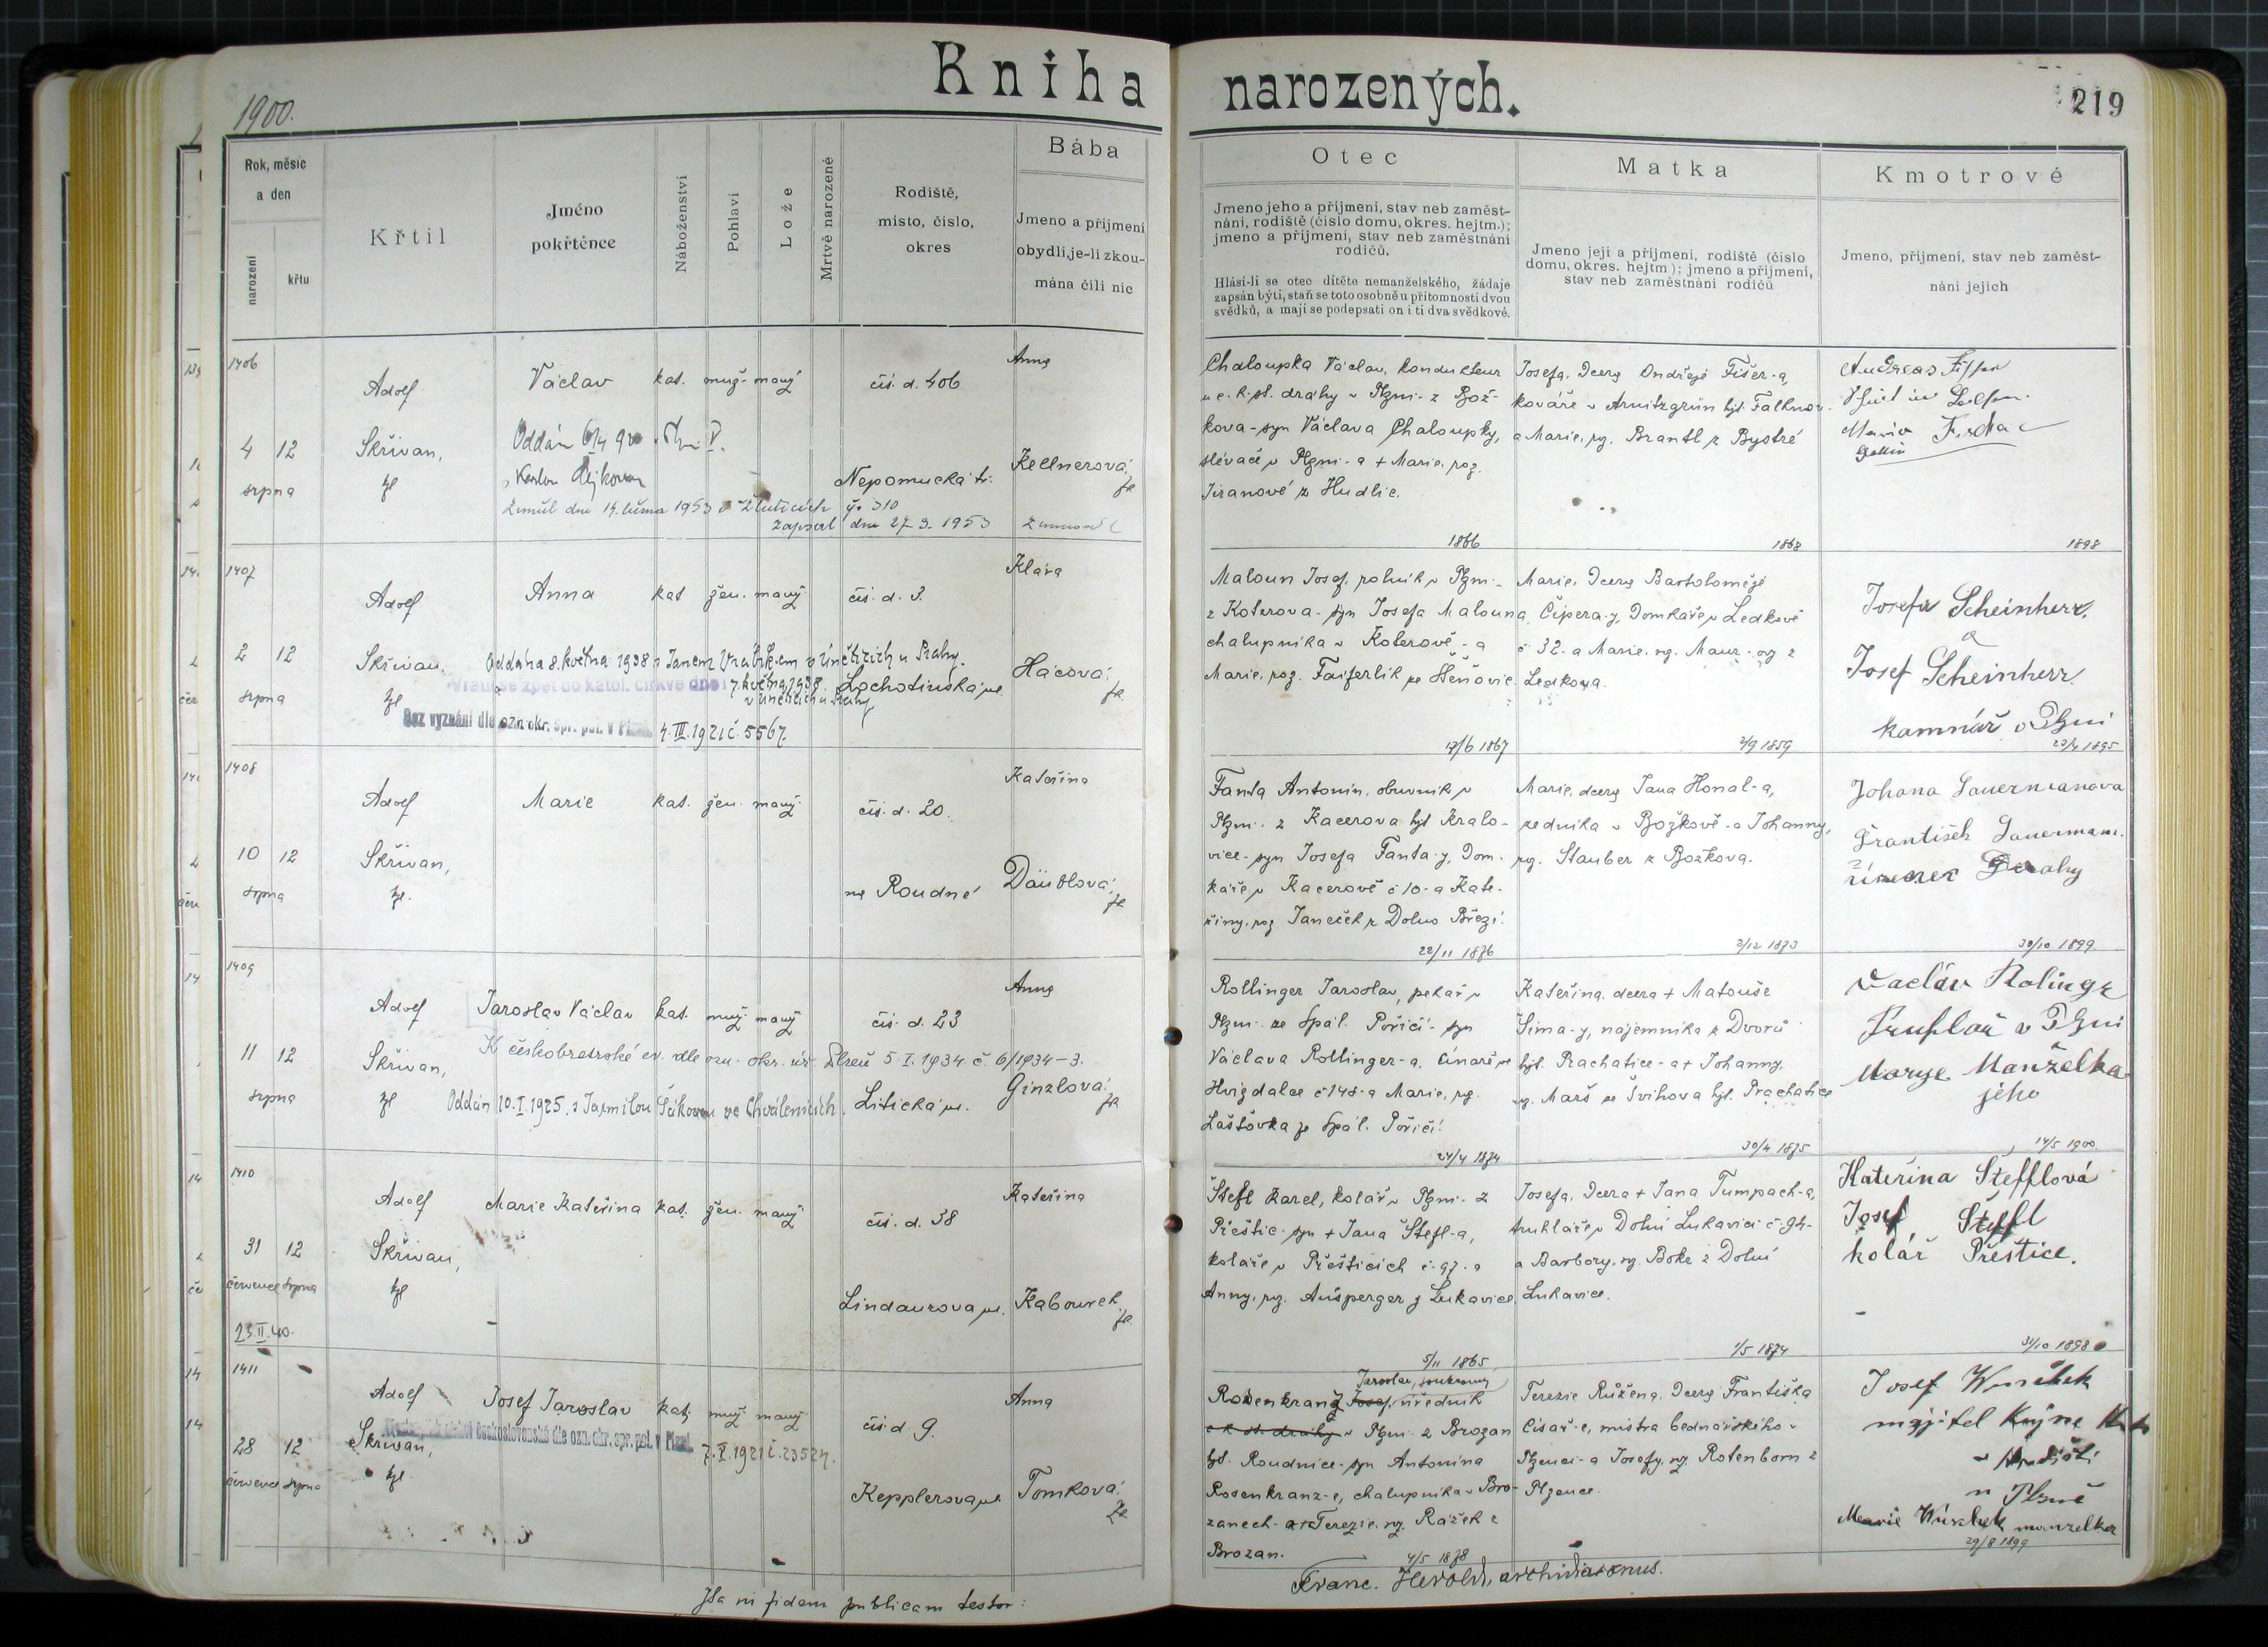 Kniha narozených.
1900.
219
Rok, měsíc
a den
narození
křtu
Křtil
Jméno
pokřtěnce
Náboženství
Pohlaví
Lože
Mrtvě narozené
Rodiště,
místo, číslo,
okres
Bába
Jmeno a příjmení
obydlí, je-li zkou-
mána čili nic
Otec
Jmeno jeho a příjmení, stav neb zaměst-
nání, rodiště (číslo domu, okres. hejtm.);
jmeno a příjmení, stav neb zaměstnání
rodičů.
Hlásí-li se otec dítěte nemanželského, žádaje
zapsán býti, staň se toto osobně u přítomnosti dvou
svědků, a mají se podepsati on i ti dva svědkové.
Matka
Jmeno její a příjmení, rodiště (číslo
domu, okres. hejtm); jmeno a příjmení,
stav neb zaměstnání rodičů
Kmotrové
Jmeno, příjmení, stav neb zaměst-
nání jejich
1406
4 12
srpna
Adolf
Skřivan,
Václav kat. muž. man.
Oddán
Zemřel dne 14. 1953 v Žluticích
zapsal dne 27-3-1953
čís. d. 406
Nepomucká tř.
Anna
Kellnerová
Chaloupka Václav, kondukteur
c. k. st. dráhy v Plzni z Bož-
kova - syn Václava Chaloupky,
slévače v Plzni - a + Marie, roz.
Jiranové z Hudlic.
1866
Josefa, dcera Ondřeje Fišer-a,
kováře v Arnitzgrün hjt. Falknov
a Marie, roz. Brantl z Bystré
1868
1898
1407
2 12
srpna
Adolf
Skřivan,
Anna kat. žen. man.
Oddána 8. května 1938 s Janem Vrabcem v Úněticích u Prahy.
Vrátil se zpět do katol. církve dne 7. května 1938
v Úněticích u Prahy
Bez vyznání dle ozn. okr. spr. pol. v Plzni 4. III. 1921 č. 5567.
čís. d. 3.
Lochotínská ul.
Klára
Hácová
Maloun Josef, rolník v Plzni -
z Koterova - syn Josefa Malouna
chalupníka v Koterově - a
Marie, roz. Faiferlík ze Štěnovic
17/6 1867
Marie, dcera Bartoloměje
Čipera-y, domkáře v Ledkově
č 32. a Marie, roz. Maur z
Ledkova.
2/9 1859
Josefa Scheinherr.
a
Josef Scheinherr
kamnář v Plzni
23/4 1895
1408
10 12
srpna
Adolf
Skřivan,
Marie kat. žen. man.
čís. d. 20.
na Roudné
Kateřina
Däublová
Fanta Antonín, obuvník v
Plzni - z Kacerova hjt Kralo-
vice - syn Josefa Fanta-y, dom-
káře v Kacerově č 10 - a Kate-
řiny, roz Janeček z Dolno Březí.
22/11 1876
Marie, dcera Jana Honal-a,
zedníka v Božkově - a Johanny,
roz. Stauber z Bozkova.
2/12 1873
Johana Sauermanova
František Sauermann.
30/10 1899
1409
11 12
srpna
Adolf
Skřivan,
Jaroslav Václav kat. muž. man.
K českobratrské ev. dle ozn. okr. úř. Plzeň 5. I. 1934 č. 6/1934-3.
Oddán 10. I. 1925 s Jarmilou ve Chválenicích.
čís. d. 23
Litická ul.
Anna
Ginzlová
Rollinger Jaroslav, pekař v
Plzni - ze Spál. Poříčí - syn
Václava Rollinger-a, cínaře ze
Hvizdalce č 148 - a Marie, roz.
Laštovka ze Spál. Poříčí.
24/4 1874
Kateřina, dcera + Matouše
Šima-y, nájemníka z Dvorů
hjt. Prachatice - a + Johanny,
roz. Marš ze Švihova hjt. Prachatice
30/4 1875
Václav Rolingr
Truhlář v Plzni
Marye Manželka
jeho
14/5 1900.
1410
31 12
července srpna
23. II. 40.
Adolf
Skřivan,
Marie Kateřina kat. žen. man.
čís. d. 38
Lindaurova ul.
Kateřina
Kabourek
Štefl Karel, kolář v Plzni - z
Přeštic - syn + Jana Štefl-a,
koláře v Přešticích č. 97 - a
Anny, roz. Aušperger z Lukavice
5/11 1865
Josefa, dcera + Jana Tumpach-a,
truhláře v Dolní Lukavici č. 94 -
a Barbory, roz. Bokr z Dolní
Lukavice.
1/5 1874
Kateřina Štefflová
Josef Šteffl
kolář Přeštice.
31/10 1898
1411
28 12
července srpna
Adolf
Skřivan,
Josef Jaroslav kat. muž. man.
československé dle ozn. okr. spr. pol. v Plzni 7. X. 1921 č. 23524.
čís d 9.
Kepplerova ul.
Anna
Tomková
Jaroslav, soukromý
Rosenkranz Josef, úředník
c. k. st. dráhy v Plzni z Brozan
hjt. Roudnice - syn Antonína
Rosenkranz-e, chalupníka v Bro-
zanech - a + Terezie, roz. Rážek z
Brozan.
4/5 1878
Terezie Růžena, dcera Františka
Císař-e, mistra bednářského v
Plzenci - a Josefy, roz. Rotenborn z
Plzence.
Josef
majitel
u Plzně
Marie manzelka
29/8 1899
Ita in fidem publicam testor:
Franc. Herold, archidiaconus.